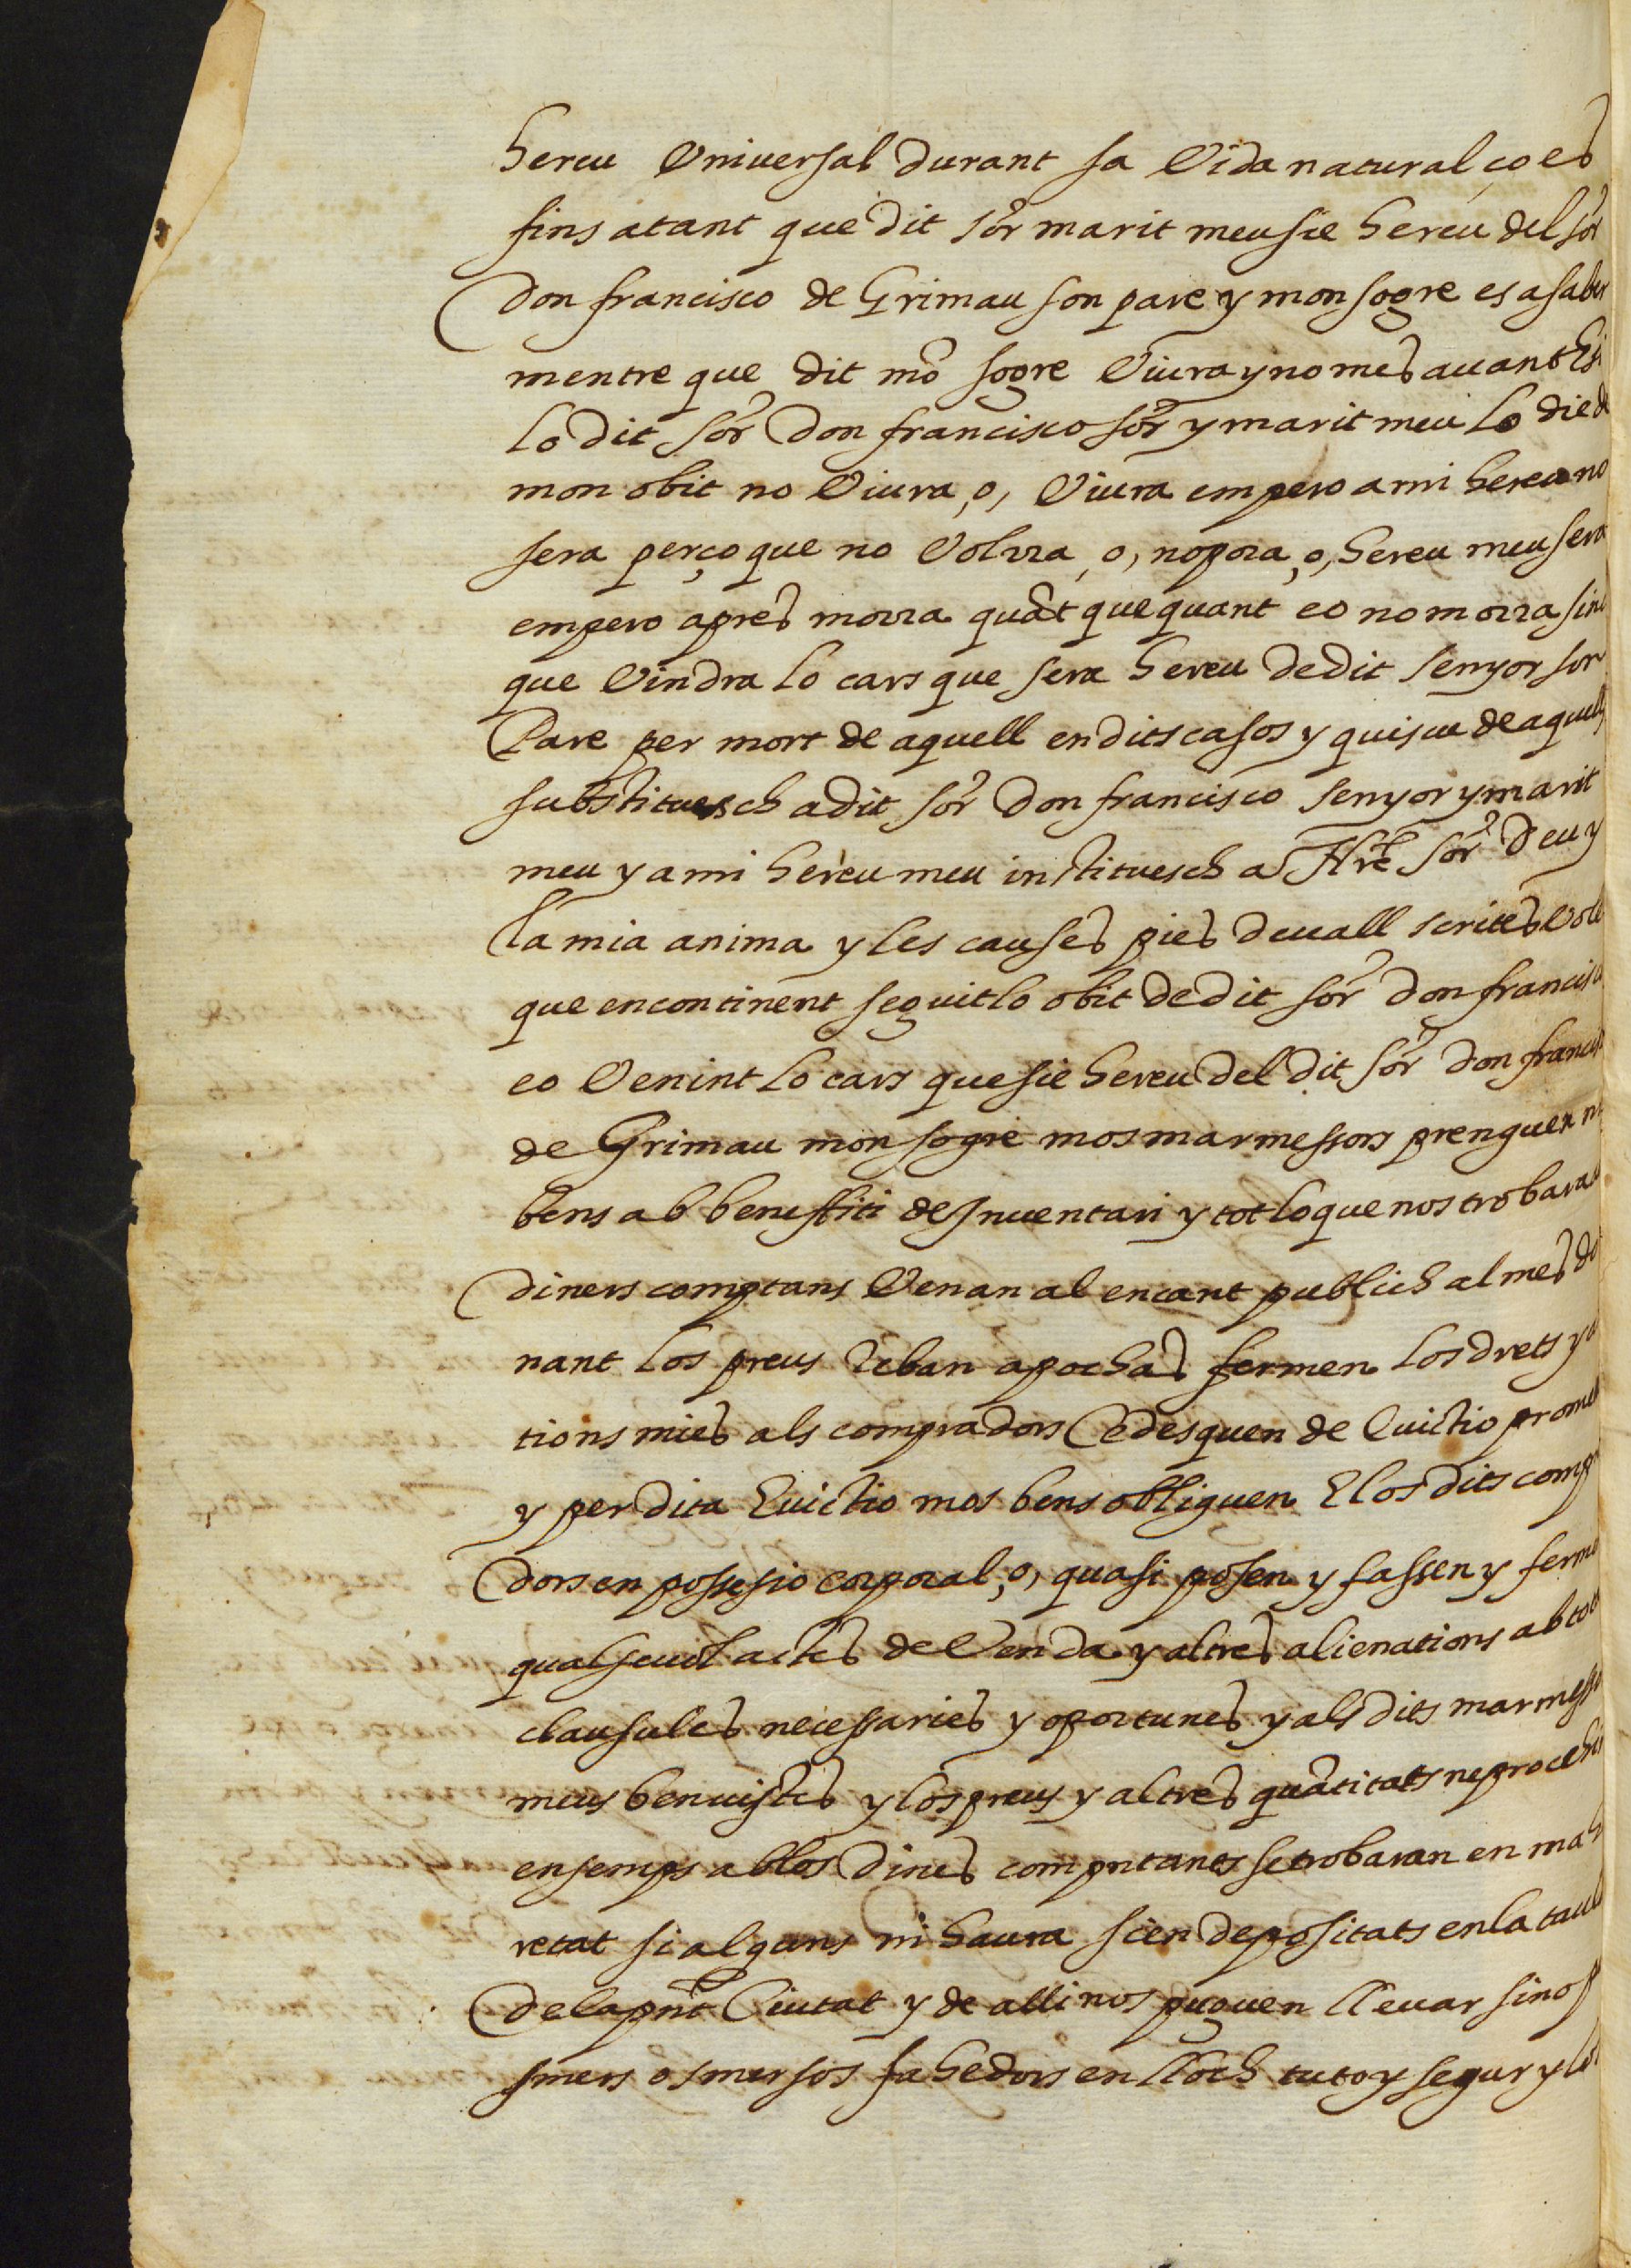 hereu Vniuersal durant sa Vida natural ço es
fins atant que dit sor marit meu sie hereu del sor
don francisco de Grimau son pare y mon sogre es a saber
mentre que dit mō sogre Viura y no mes auant E si
lo dit sor don francisco sor y marit meu lo die de
mon obit no Viura, o, Viura empero a mi hereu no
sera perço que no Volrra, o, no pora, o, hereu meu sera
empero apres morra quāt que quant eo no morra sino
que Vindra lo cars que sera hereu de dit senyor son
Pare per mort de aquell en dits casos y quiscu de aquells
substituesch a dit sor don francisco senyor y marit
meu y a mi hereu meu instituesch a Nre sor Deu y
la mia anima y les causes pies deuall scrites Vole
que encontinent seguit lo obit de dit sor don francisco
eo Venint lo cars que sie hereu del dit sor don francisco
de Grimau mon sogre mos marmessors prenguen m
bens ab beneffiti de Inuentari y tot lo que nos trobara
diners comptans Venan al encant publich al mes do
nant los preus reban apochas fermen los drets y a
tions mies als compradors Cedesquen de Euictio prome
y per dita Euictio mos bens obliguen E los dits comp
dors en possesio corporal, o, quasi posen y fassen y ferme
qualseuol actes de Venda y altres alienations ab tot
clausules necessaries y oportunes y als dits marmesso
meus benuistes y los preus y altres quātitats ne procehi
ensemps ab los dines comptants se trobaran en ma h
retat si alguns ni haura sien depositats en la taula
de la pnt Ciutat y de alli nos puguen lleuar sino p
smers o smersos fahedors en lloch tuto y segur y lo